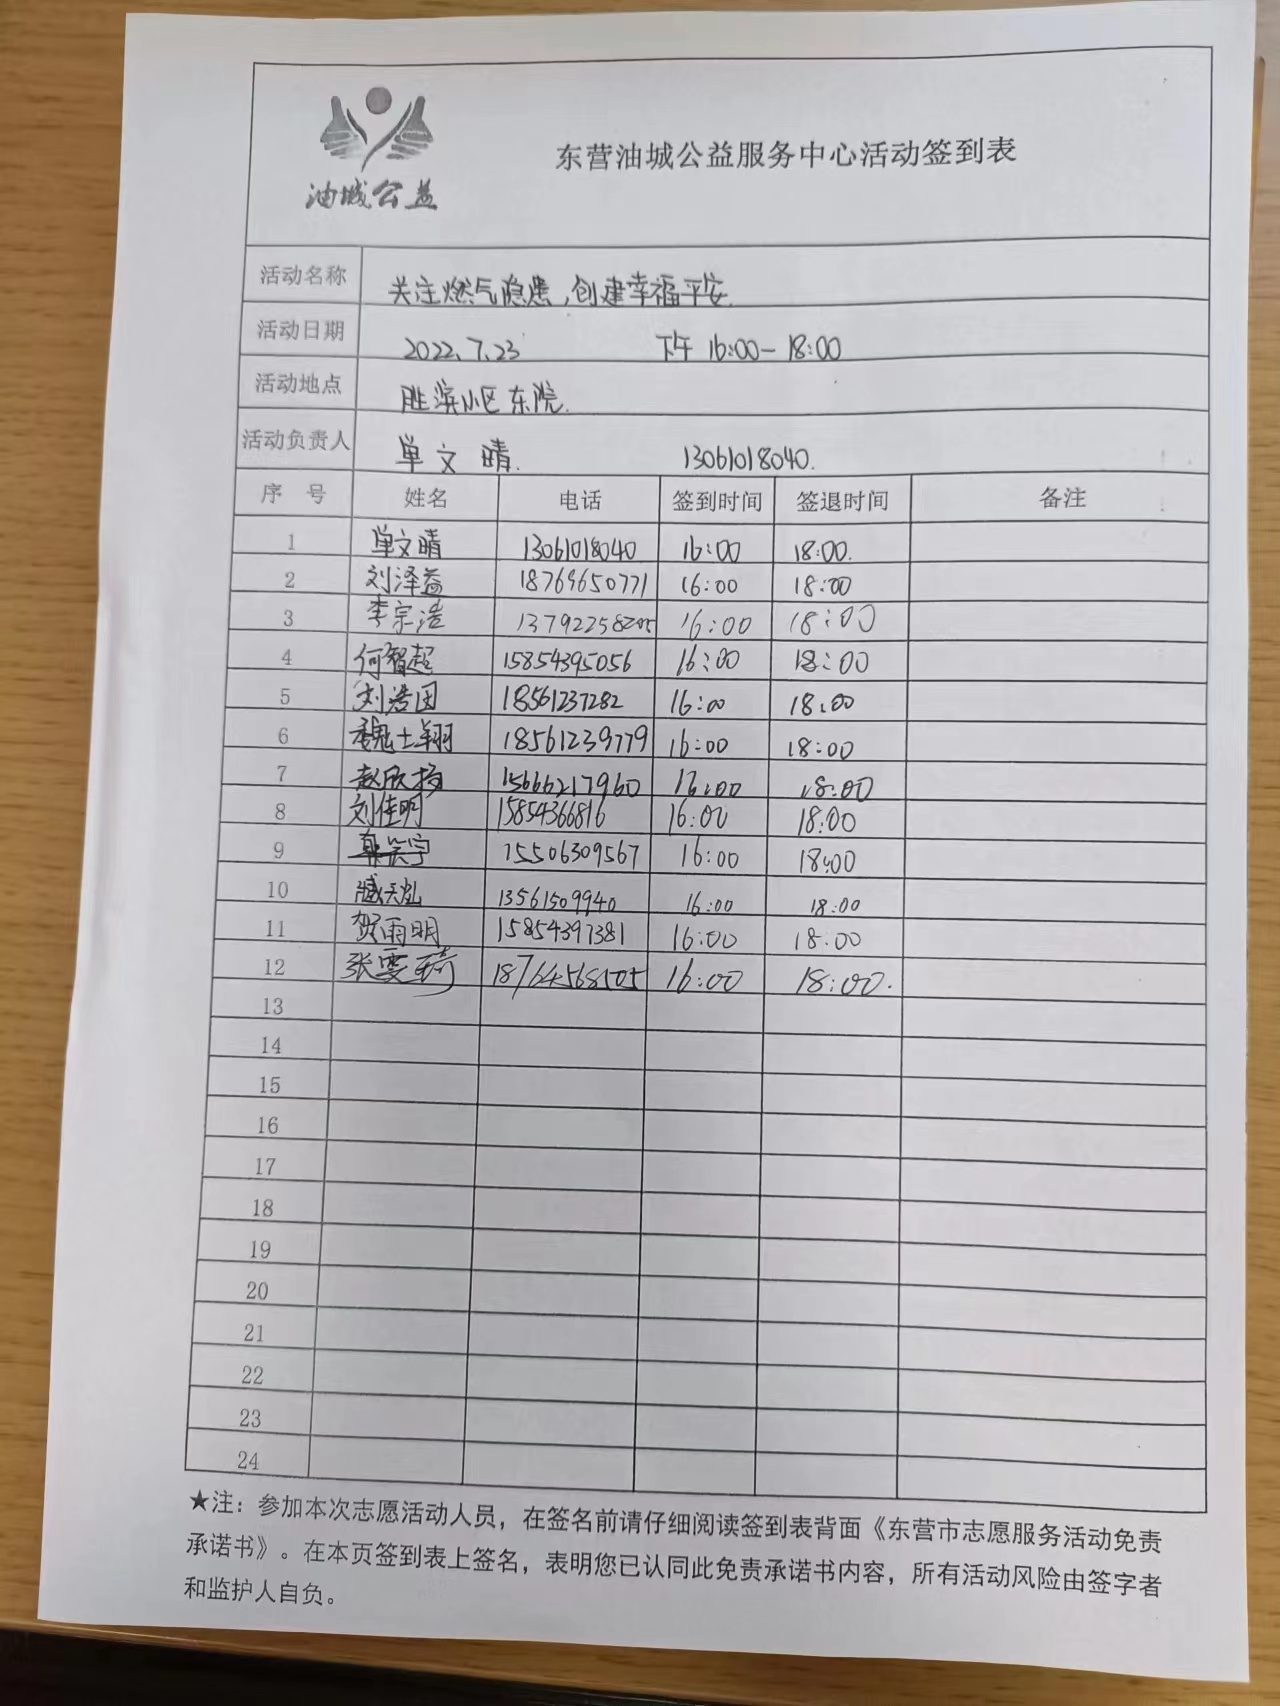 油城公益
东营油城公益服务中心活动签到表
活动名称 关注燃气隐患,创建幸福平安.
活动日期 2022.7.23 下午 16:00-18:00
活动地点 胜滨小区东院.
活动负责人 单文晴. 13061018040.
序 号 姓名 电话 签到时间 签退时间 备注
1 单文晴 13061018040 16:00 18:00.
2 刘泽益 18769650771 16:00 18:00
3 李宗浩 16:00 18:00
4 何智超 15854395056 16:00 18:00
5 刘浩田 18561237282 16:00 18:00
6 魏士翔 18561239779 16:00 18:00
7 赵欣扬 15666217960 16:00 18:00
8 刘佳明 15854366816 16:00 18:00
9 15506309567 16:00 18:00
10 13561509940 16:00 18:00
11 贺雨明 15854397381 16:00 18:00
12 张雯琦 18764568505 16:00 18:00.
13
14
15
16
17
18
19
20
21
22
23
24
★注：参加本次志愿活动人员，在签名前请仔细阅读签到表背面《东营市志愿服务活动免责
承诺书》。在本页签到表上签名，表明您已认同此免责承诺书内容，所有活动风险由签字者
和监护人自负。